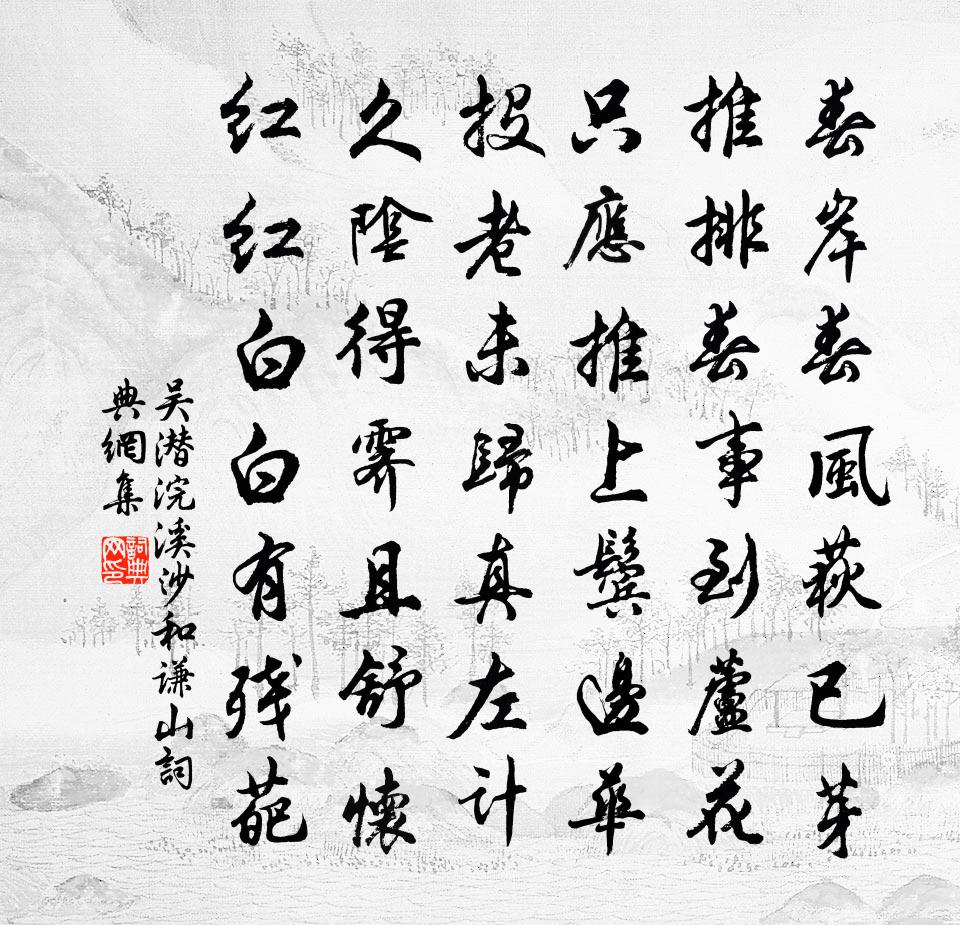 春岸春風荻已芽
推排春事到蘆花
只應推上鬢邊華
投老未歸真左計
久陰得霽且舒懷
红红白白有残葩
吴潜浣溪沙和谦山詞
典網集
詞典网印